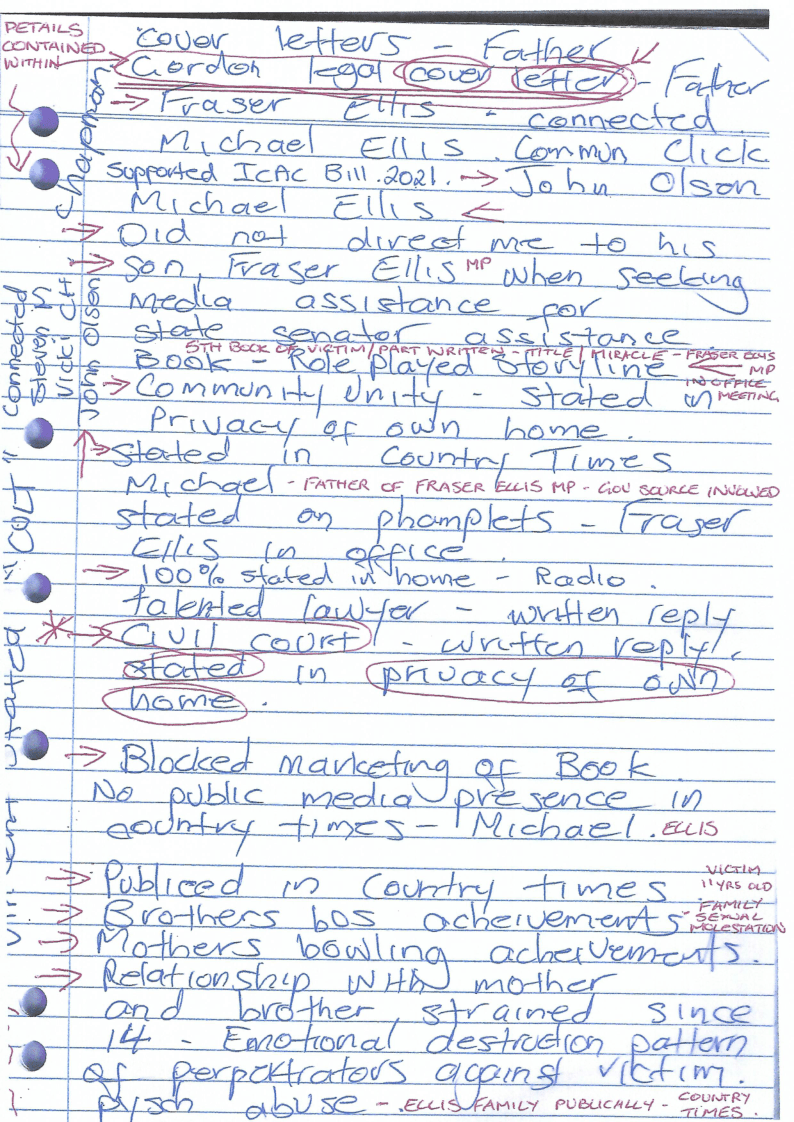 DETAILS
CONTAINED
WITHIN
cover letters - Father
Gordon legal cover letter - Father
Fraser Ellis - connected
Michael Ellis. Commun Click
Supported ICAC Bill. 2021. → John Olson
Michael Ellis
→ Did not direct me to his
→ son, Fraser Ellis MP when seeking
media assistance for
state senator assistance
5TH BOOK OF VICTIM/PART WRITTEN - TITLE / MIRACLE - FRASER ELLIS MP
Book - Role played storyline
IN OFFICE MEETING
→ Community Unity - stated in
Privacy of own home.
→ stated in Country Times
Michael - FATHER OF FRASER ELLIS MP - GOV SOURCE INVOLVED
stated on phamplets - Fraser
Ellis in office.
→ 100% stated in home - Radio.
talented lawyer - written reply
* → Civil court - written reply.
stated in privacy of own
home.
→ Blocked marketing of Book.
No public media presence in
country times - Michael. ELLIS
→ Publiced in Country times
VICTIM
11 YRS OLD
FAMILY
SEXUAL
MOLESTATION
→ Brothers bos acheivements
→ Mothers bowling acheivements.
→ Relationship with mother
and brother, strained since
14 - Emotional destruction pattern
of perpatrators against victim.
pysch abuse - . ELLIS FAMILY PUBLICALLY - COUNTRY TIMES.
Chapman
Connected
Steven
Vicki
John Olsen
stated "CULT"